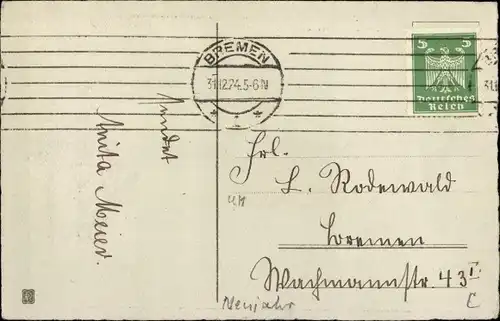 BREMEN
31.12.24.5-6N
5 5
Deutsches
Reich
sendet
Anita Meier.
Frl.
L. Rodewald
Bremen
Wachmannstr. 43 I
Neujahr